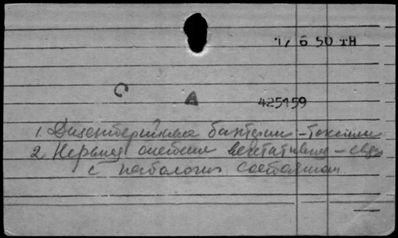 17 6 50 ТН
С
А
425159
1. Дизентерийные бактерии - токсины
2. Нервная система вегетативная - связь
с патологич состоянием